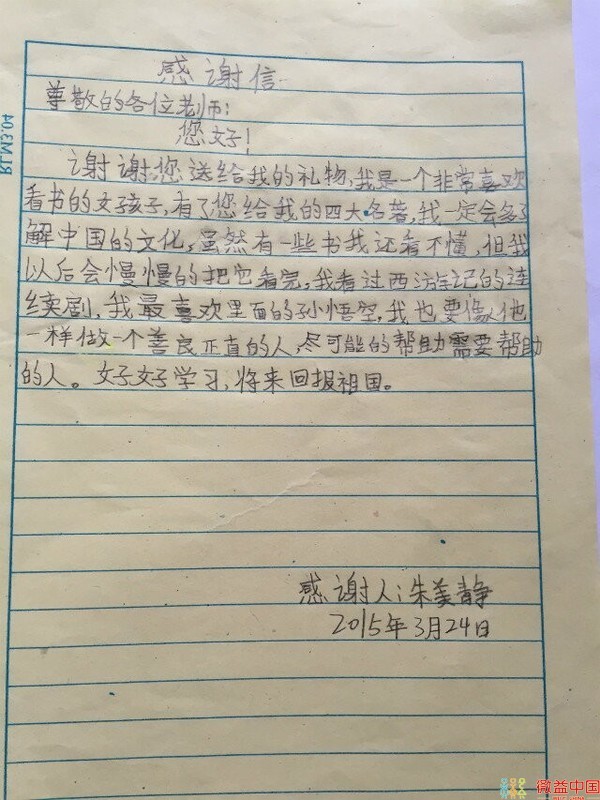 感谢信
尊敬的各位老师:
您好!
谢谢您送给我的礼物,我是一个非常喜欢
看书的女孩子,有了您给我的四大名著,我一定会多了
解中国的文化,虽然有一些书我还看不懂,但我
以后会慢慢的把它看完,我看过西游记的连
续剧,我最喜欢里面的孙悟空,我也要像他
一样做一个善良正直的人,尽可能的帮助需要帮助
的人。好好学习,将来回报祖国。
感谢人:朱美静
2015年3月24日
RLM3.04
微益中国